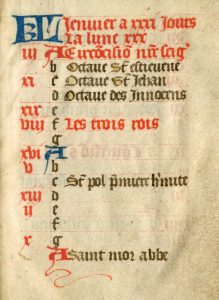 EN Jenuier a xxxi Jours
La lune xxx
iii A circoncisio nre seigr
b Octave St estieuene
xi c Octave St Jehan
d Octave des Innocens
xix e
viii f Les trois rois
g
xvi A
v b
c St pol pmiere hmite
xiii d
ii e
f
x g
A Saint mor abbe